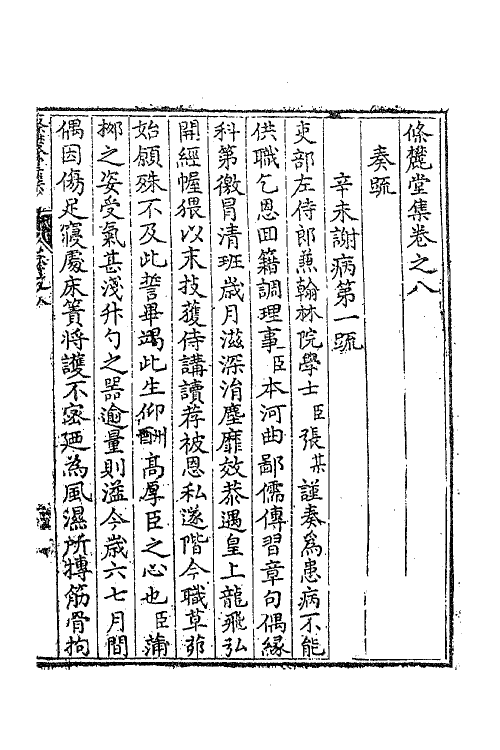 條麓堂集卷之八
奏疏
辛未謝病第一疏
吏部左侍郎兼翰林院學士臣張某謹奏為患病不能
供職乞恩回籍調理事臣本河曲鄙儒傳習章句偶緣
科第徼冒清班歲月滋深涓塵靡效恭遇皇上龍飛弘
開經幄猥以末技獲侍講讀荐被恩私遂階今職草茆
始願殊不及此誓畢竭此生仰酬高厚臣之心也臣蒲
柳之姿受氣甚淺升勺之器逾量則溢今歲六七月間
偶因傷足寢處床簀將護不密廼為風濕所摶筋骨拘